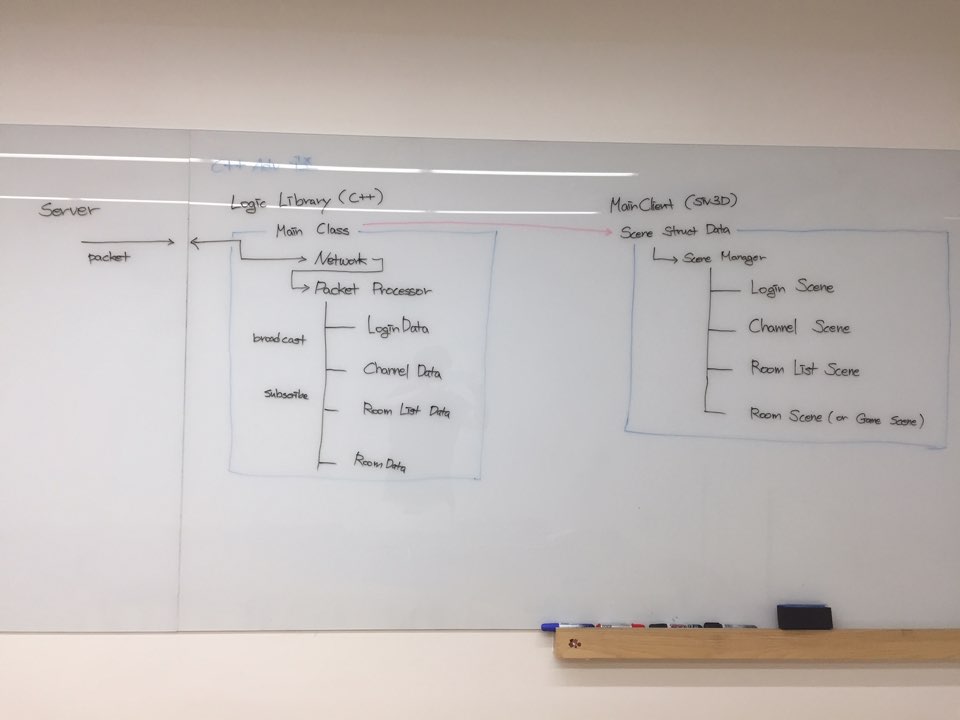 Server
packet
Logic Library (C++)
Main Class
Network
Packet Processor
broadcast
subscribe
Login Data
Channel Data
Room List Data
Room Data
Main Client
Scene Struct Data
Scene Manager
Login Scene
Channel Scene
Room List Scene
Room Scene (or Game Scene)